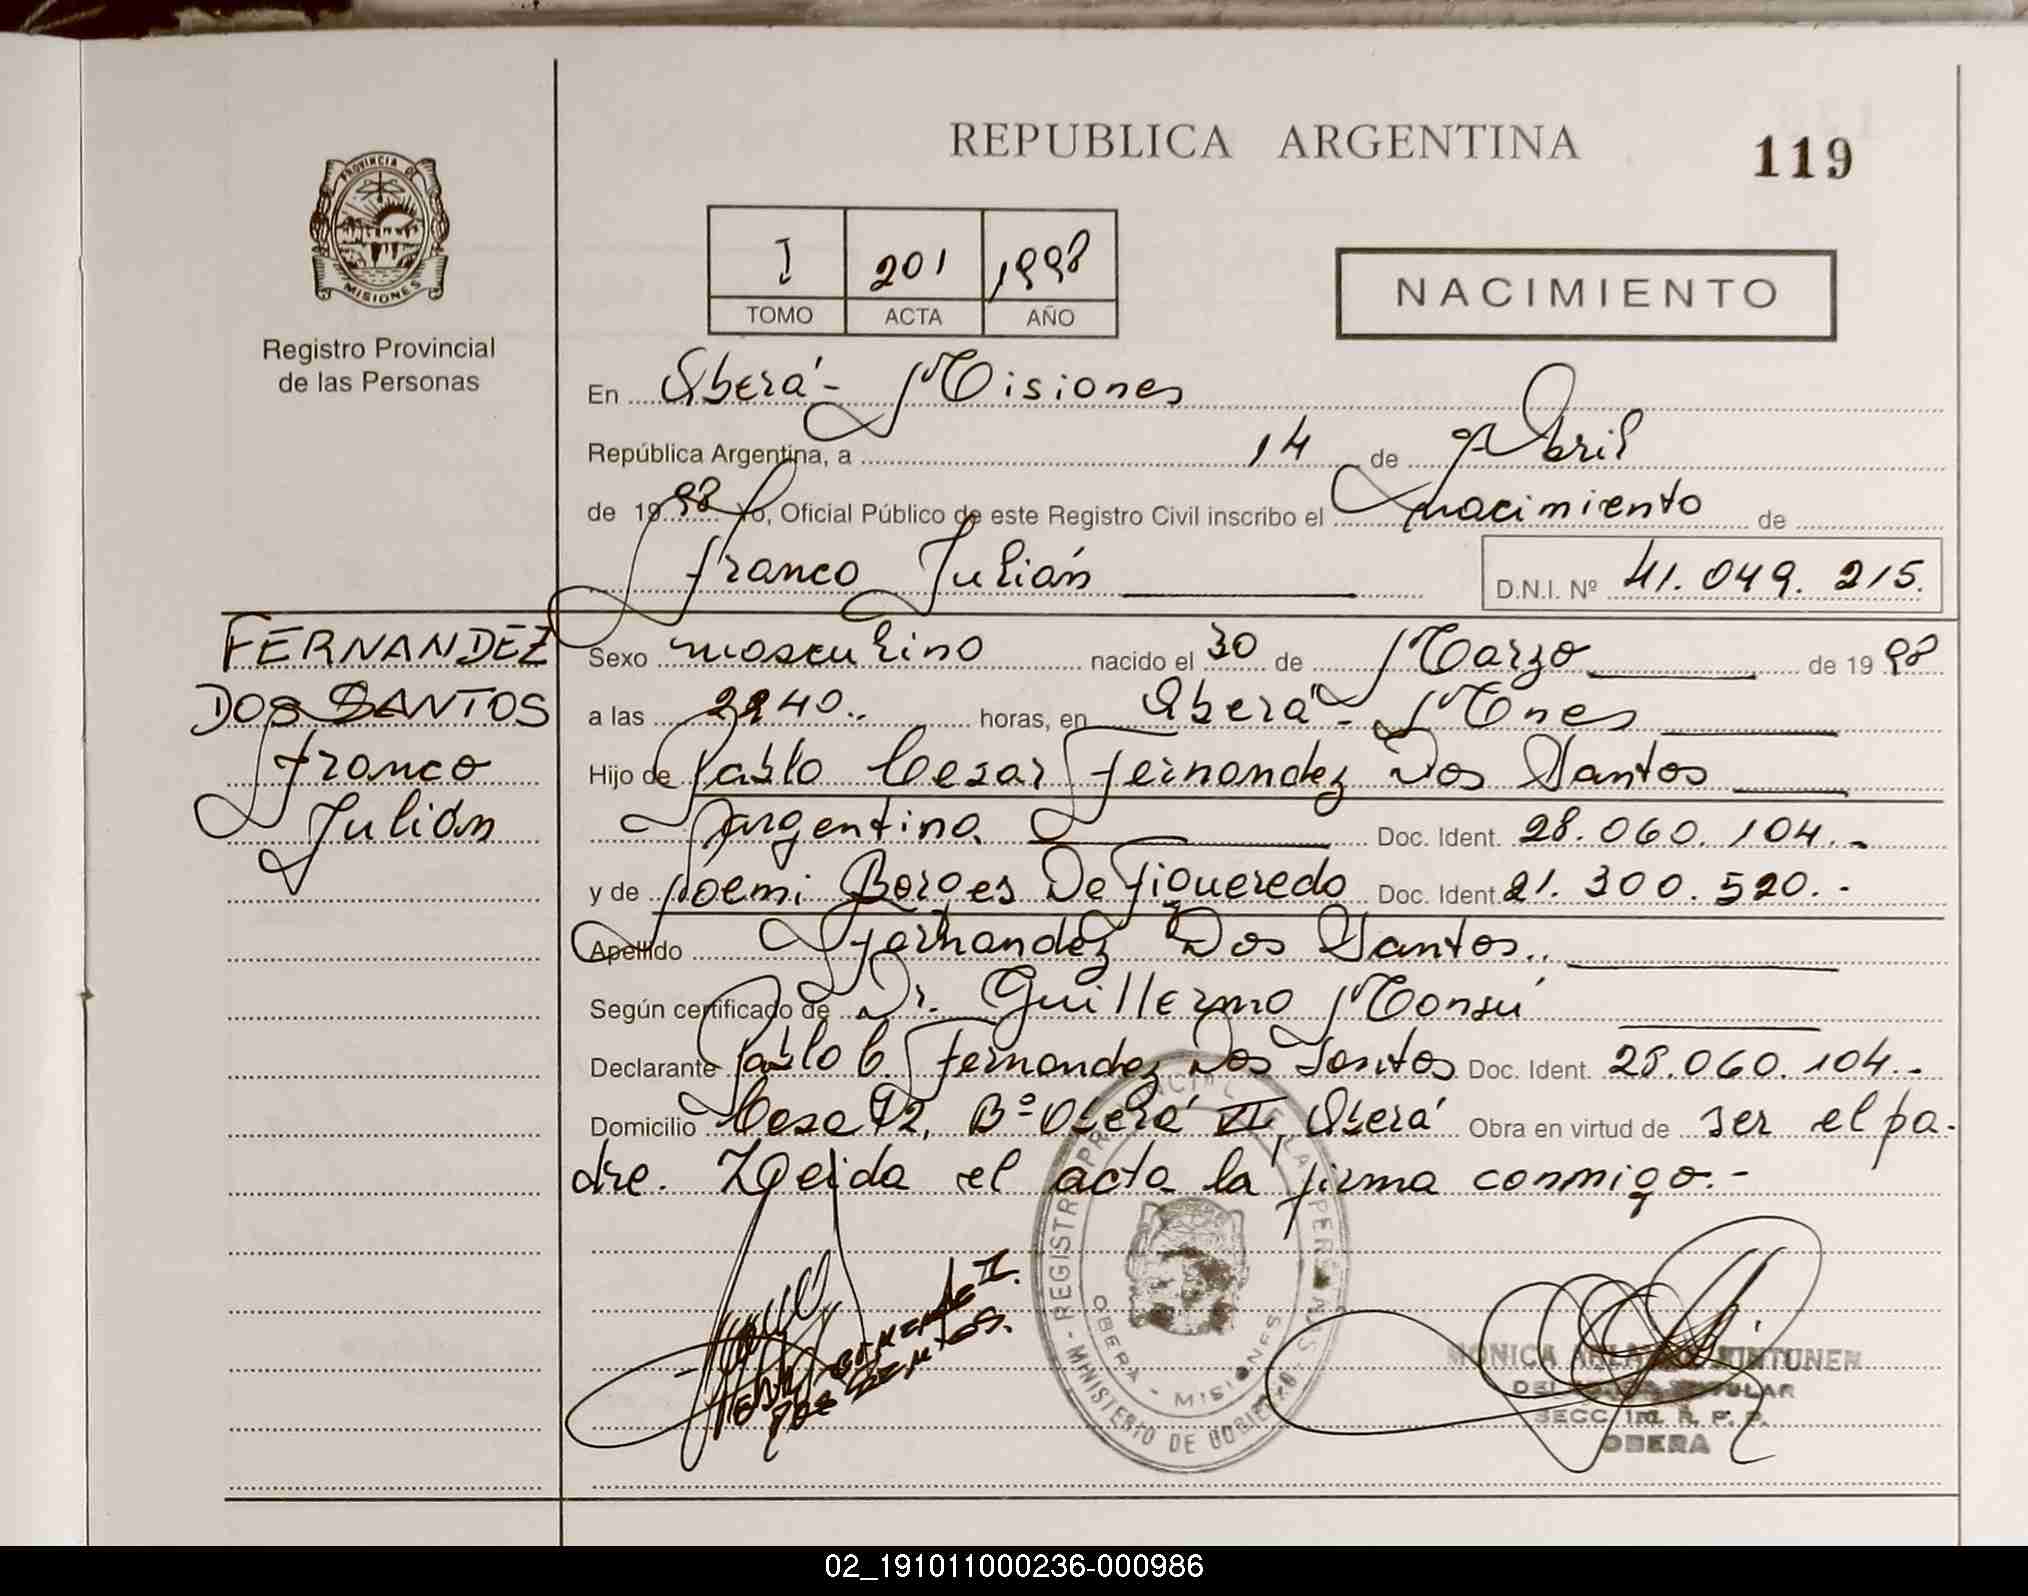 REPUBLICA ARGENTINA
119
PROVINCIA DE
MISIONES
Registro Provincial
de las Personas
I 201 1998
TOMO ACTA AÑO
NACIMIENTO
En Oberá - Misiones
República Argentina, a 14 de Abril
de 1998 Yo, Oficial Público de este Registro Civil inscribo el nacimiento de
Franco Julián D.N.I. Nº 41.049.215.
FERNANDEZ
DOS SANTOS
Franco
Julián
Sexo masculino nacido el 30 de Marzo de 1998
a las 2240.. horas, en Oberá - Mnes
Hijo de Pablo Cesar Fernandez Dos Santos
Argentina Doc. Ident. 28.060.104.-
y de Noemi Borges De Figueredo Doc. Ident. 21.300.520.-
Apellido Fernandez Dos Santos..
Según certificado de Dr. Guillermo Monsú
Declarante Pablo C. Fernandez Dos Santos Doc. Ident. 28.060.104.-
Domicilio Casa 72, Bº Oberá VI, Oberá Obra en virtud de ser el pa-
dre. Leida el acta la firma conmigo.-
REGISTRO PROVINCIAL DE LAS PERSONAS
MINISTERIO DE GOBIERNO
OBERA - MISIONES
MONICA
TITULAR
SECC. 1ra. R. P. P.
OBERA
02_191011000236-000986